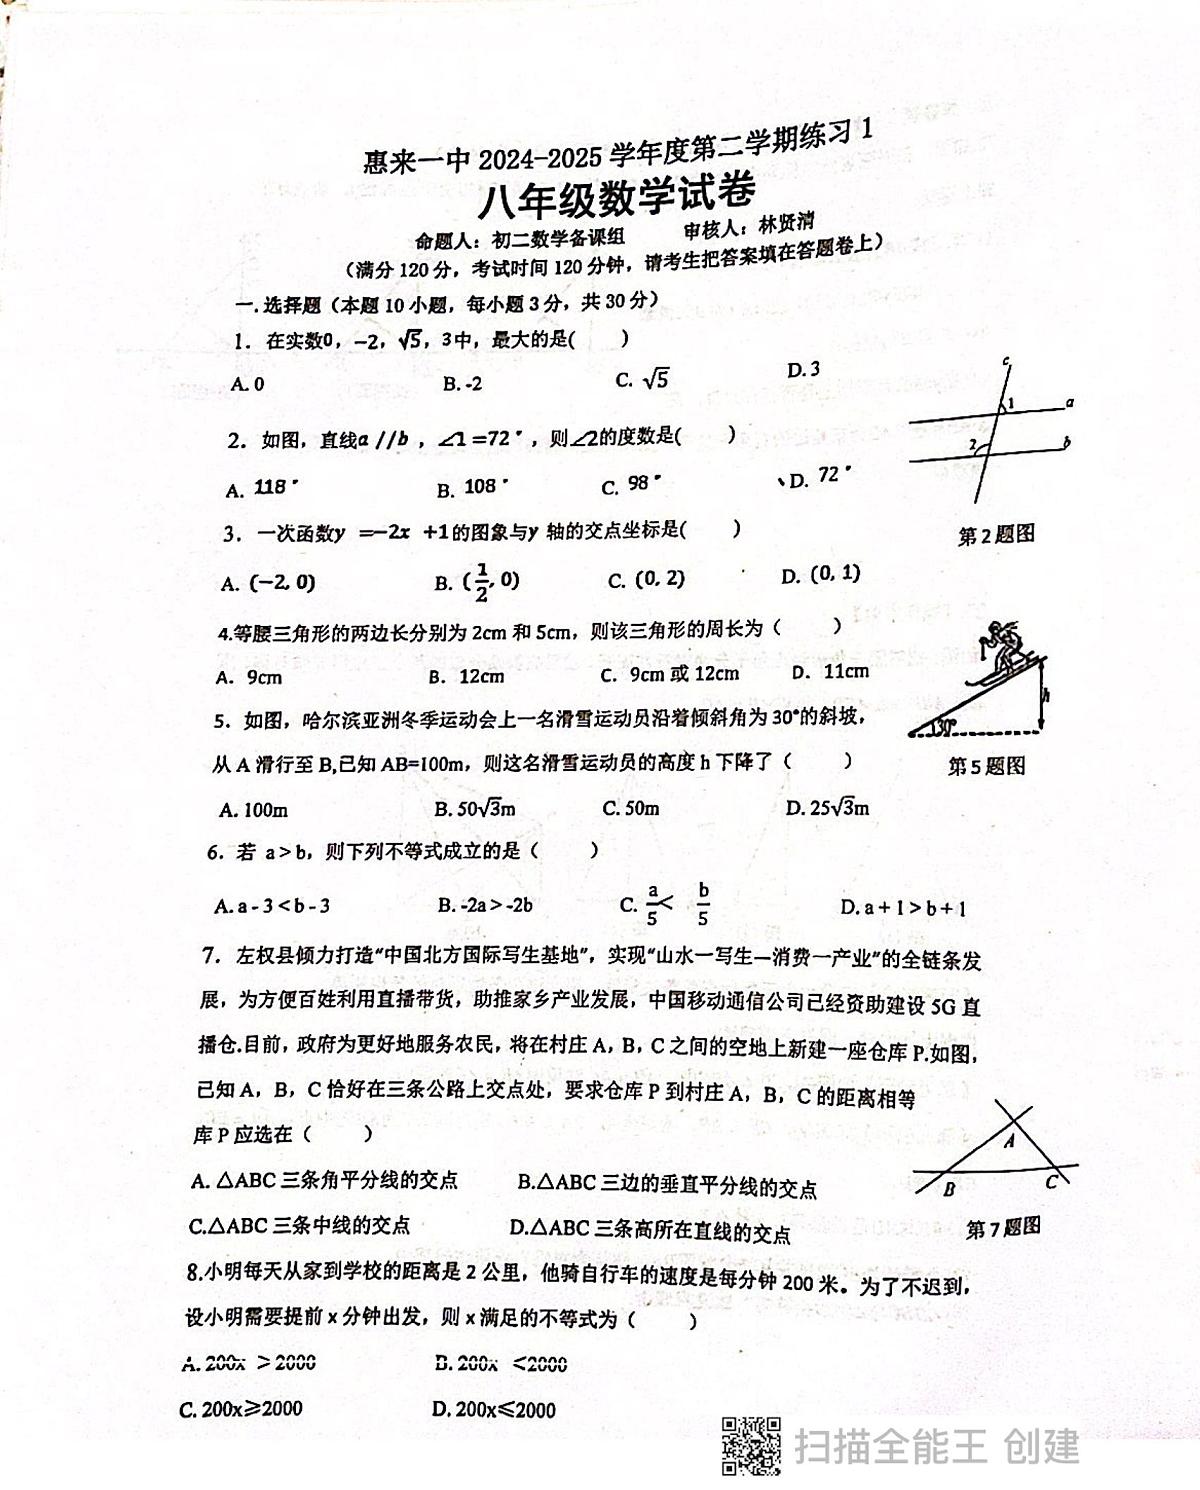 惠来一中 2024-2025 学年度第二学期练习 1
八年级数学试卷
命题人：初二数学备课组 审核人：林贤清
（满分 120 分，考试时间 120 分钟，请考生把答案填在答题卷上）
一. 选择题（本题 10 小题，每小题 3 分，共 30 分）
1. 在实数0，-2，√5，3中，最大的是( )
A. 0 B. -2 C. √5 D. 3
c
1
a
2. 如图，直线a //b ，∠1 =72°，则∠2的度数是( )
2
b
A. 118° B. 108° C. 98° D. 72°
3. 一次函数y =-2x +1的图象与y 轴的交点坐标是( )
第 2 题图
A. (-2, 0) B. (1/2, 0) C. (0, 2) D. (0, 1)
4.等腰三角形的两边长分别为 2cm 和 5cm，则该三角形的周长为（ ）
A. 9cm B. 12cm C. 9cm 或 12cm D. 11cm
h
5. 如图，哈尔滨亚洲冬季运动会上一名滑雪运动员沿着倾斜角为 30°的斜坡，
30°
从 A 滑行至 B,已知 AB=100m，则这名滑雪运动员的高度 h 下降了（ ）
第 5 题图
A. 100m B. 50√3m C. 50m D. 25√3m
6. 若 a > b，则下列不等式成立的是（ ）
A. a - 3 < b - 3 B. -2a > -2b C. a/5 < b/5 D. a + 1 > b + 1
7. 左权县倾力打造“中国北方国际写生基地”，实现“山水一写生—消费一产业”的全链条发
展，为方便百姓利用直播带货，助推家乡产业发展，中国移动通信公司已经资助建设 5G 直
播仓.目前，政府为更好地服务农民，将在村庄 A，B，C 之间的空地上新建一座仓库 P.如图，
已知 A，B，C 恰好在三条公路上交点处，要求仓库 P 到村庄 A，B，C 的距离相等
库 P 应选在（ ）
A
B
C
A. △ABC 三条角平分线的交点 B.△ABC 三边的垂直平分线的交点
C.△ABC 三条中线的交点 D.△ABC 三条高所在直线的交点
第 7 题图
8.小明每天从家到学校的距离是 2 公里，他骑自行车的速度是每分钟 200 米。为了不迟到，
设小明需要提前 x 分钟出发，则 x 满足的不等式为（ ）
A. 200x >2000 B. 200x <2000
C. 200x≥2000 D. 200x≤2000
扫描全能王 创建